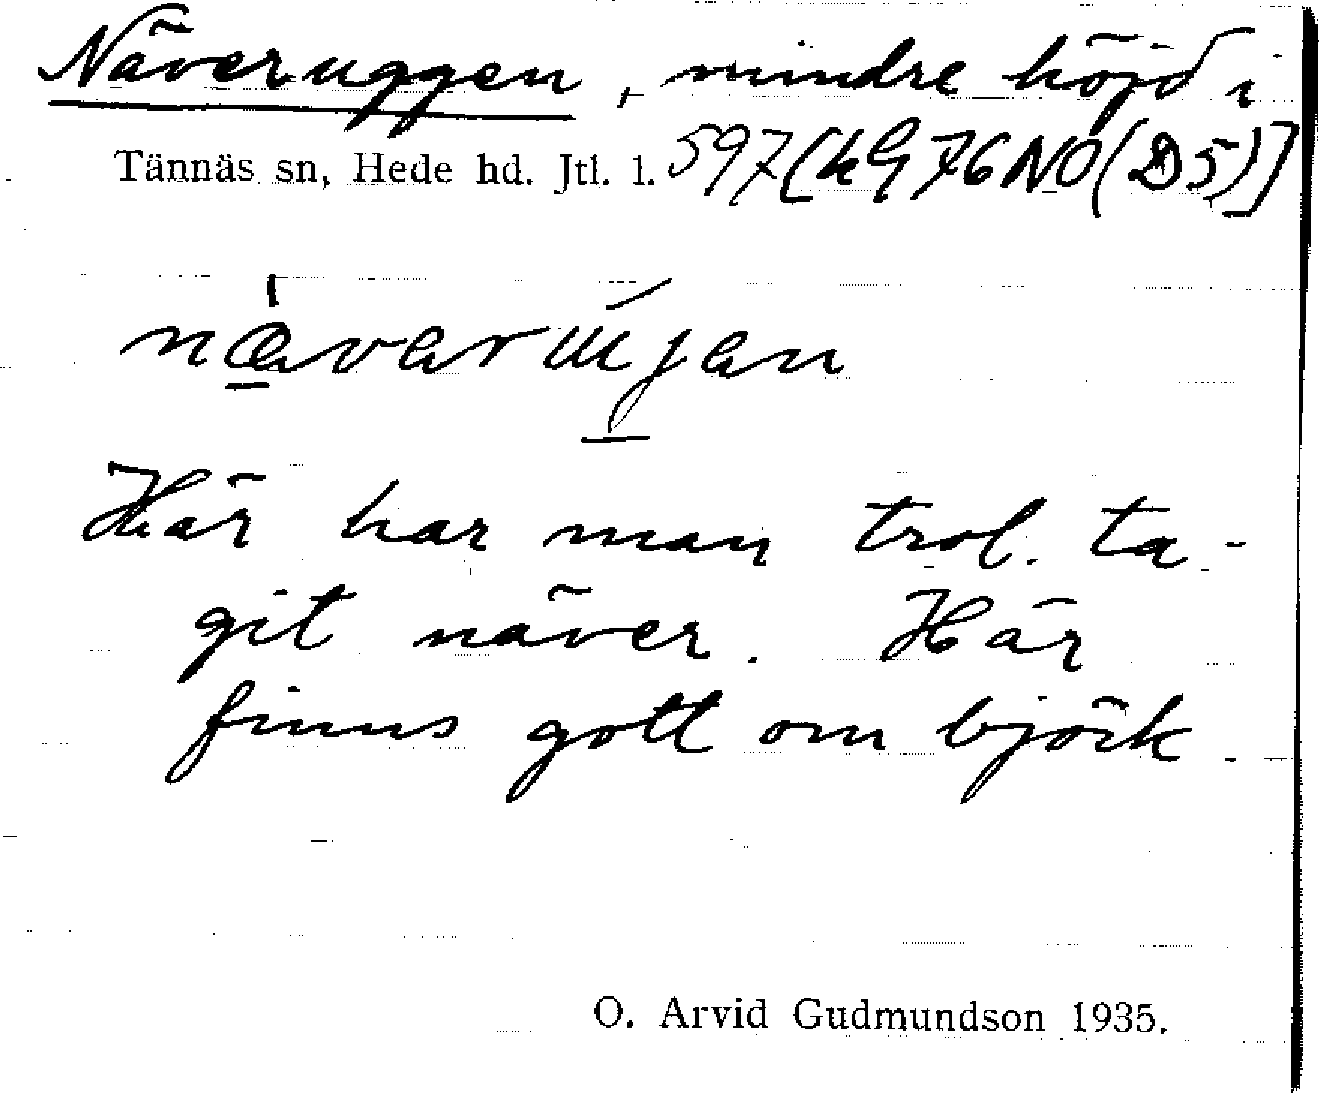 Näveruggen, mindre höjd i
Tännäs sn, Hede hd. Jtl. l. 597 [kG 76 NO (D5)]
Här har man trol. ta-
git näver. Här
finns gott om björk.
O. Arvid Gudmundson 1935.